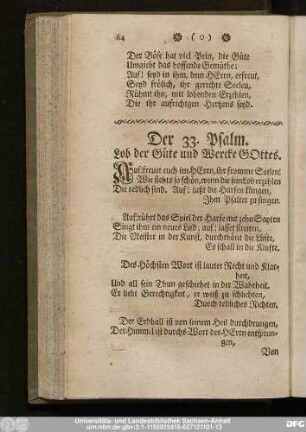 64 (o)
Der Böse hat viel Pein, die Güte
Umgiebt das hoffende Gemüthe:
Auf! seyd in ihm, dem HErrn, erfreut,
Seyd frölich, ihr gerechte Seelen,
Rühmt ihn, mit lobenden Erzehlen,
Die ihr aufrichtgen Hertzens seyd.
Der 33. Psalm.
Lob der Güte und Wercke GOttes.
Auf freuet euch im HErrn, ihr fromme Seelen!
Wie stehts so schön, wenn die sein Lob erzehlen
Die redlich sind. Auf! laßt die Harfen klingen,
Ihm Psalter zu singen.
Aufrühret das Spiel der Harfe mit zehn Sayten
Singt ihm ein neues Lied; auf! lasset streiten,
Die Meister in der Kunst, durchthönt die Lüfte,
Es schall in der Klüfte.
Des Höchsten Wort ist lauter Recht und Klar-
heit,
Und all sein Thun geschiehet in der Wahrheit.
Er liebt Gerechtigkeit, er weiß zu schlichten,
Durch redliches Richten.
Der Erdball ist von seinem Heil durchdrungen,
Der Himmel ist durchs Wort des HErrn entsprun-
gen,
Von
Universitäts- und Landesbibliothek Sachsen-Anhalt
urn:nbn:de:gbv:3:1-1192015415-627121101-13
DFG